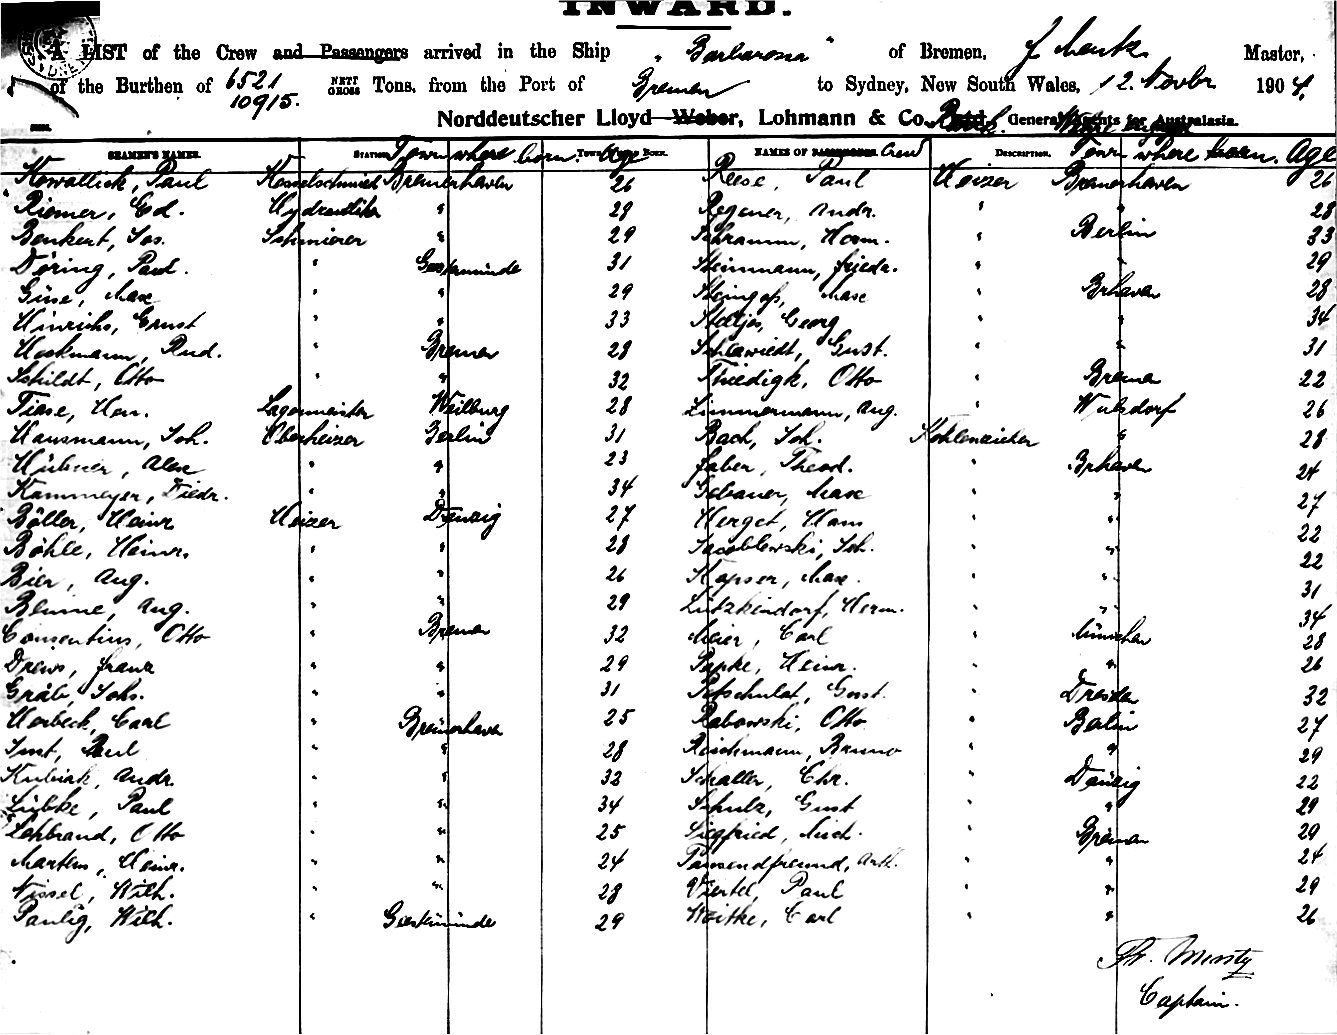 INWARD.
A LIST of the Crew and Passengers arrived in the Ship "Barbarossa" of Bremen, Master,
of the Burthen of 6521 NETT Tons, from the Port of Bremen to Sydney, New South Wales, 12. Novbr 1904.
10915. GROSS
Norddeutscher Lloyd Weber, Lohmann & Co. Ltd. General Agents for Australasia.
SEAMEN'S NAMES. STATION. Town where born. Age TOWN WHERE BORN. NAMES OF PASSENGERS. Crew DESCRIPTION. Town where born. Age
Kowallick, Paul Kesselschmied Bremerhaven 26 Reese, Paul Heizer Bremerhaven 26
Riemer, Ed. " 29 Regener, Andr. " " 28
Benkert, Jos. Schmierer " 29 Schramm, Herm. " Berlin 33
Döring, Paul. " Geestemünde 31 Steinmann, Friedr. " " 29
Giese, Max " " 29 Max " Brhaven 28
Hinrichs, Ernst " " 33 Steljes, Georg " " 34
Heckmann, Rud. " Bremen 28 Gust. " " 31
Schildt, Otto " " 32 Thiedigk, Otto " Bremen 22
Tiase, Hen. Lagermeister Weilburg 28 Zimmermann, Aug. " Wulsdorf 26
Hausmann, Joh. Oberheizer Berlin 31 Bach, Joh. Kohlenzieher " 28
Hübner, Alex " " 23 Faber, Theod. " Brhaven 24
Kammeyer, Diedr. " " 34 Gebauer, Max " " 27
Böller, Heinr. Heizer Danzig 27 Herget, Hans " " 22
Böhle, Heinr. " " 28 Jacoblewski, Joh. " " 22
Bier, Aug. " " 26 Kapser, Max. " " 31
Blume, Aug. " " 29 Lützkendorf, Herm. " " 34
Consentius, Otto " Bremen 32 Meier, Carl " München 28
Drews, Franz " " 29 Papke, Heinr. " " 26
Gräb, Johs. " " 31 Potschulat, Gust. " Dresden 32
Herbeck, Carl " Bremerhaven 25 Rabowski, Otto " Berlin 27
Just, Paul " " 28 Reichmann, Bruno " " 29
Kubiak, Andr. " " 32 Schaller, Chr. " Danzig 22
Lübke, Paul " " 34 Schulz, Gust " " 29
Lehbrand, Otto " " 25 Siegfried, Mich. " Bremen 29
Martens, Heinr. " " 24 Tausendfreund, Arth. " " 24
Nissel, Wilh. " " 28 Viertel, Paul " " 29
Paulig, Wilh. " Geestemünde 29 Woitke, Carl " " 26
Captain.